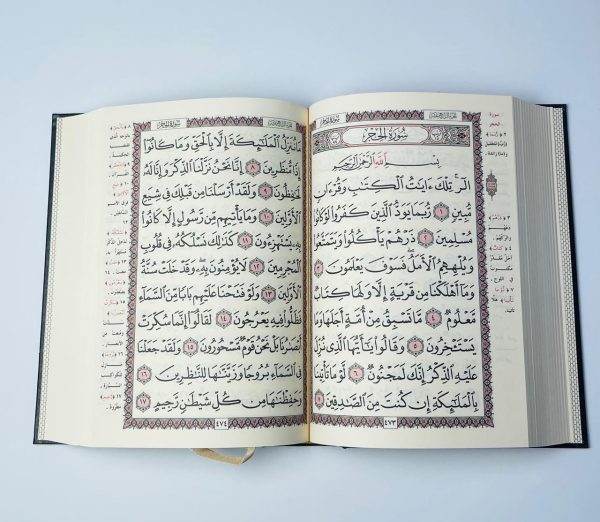 سُورَةُ الحِجْرِ
بِسْمِ اللَّهِ الرَّحْمَٰنِ الرَّحِيمِ
الٓرۚ تِلْكَ ءَايَٰتُ ٱلْكِتَٰبِ وَقُرْءَانٍ
مُّبِينٍ ١ رُّبَمَا يَوَدُّ ٱلَّذِينَ كَفَرُوا۟ لَوْ كَانُوا۟
مُسْلِمِينَ ٢ ذَرْهُمْ يَأْكُلُوا۟ وَيَتَمَتَّعُوا۟
وَيُلْهِهِمُ ٱلْأَمَلُ فَسَوْفَ يَعْلَمُونَ ٣
وَمَآ أَهْلَكْنَا مِن قَرْيَةٍ إِلَّا وَلَهَا كِتَابٌ
مَّعْلُومٌ ٤ مَّا تَسْبِقُ مِنْ أُمَّةٍ أَجَلَهَا وَمَا
يَسْتَـْٔخِرُونَ ٥ وَقَالُوا۟ يَٰٓأَيُّهَا ٱلَّذِى نُزِّلَ
عَلَيْهِ ٱلذِّكْرُ إِنَّكَ لَمَجْنُونٌ ٦ لَّوْ مَا تَأْتِينَا
بِٱلْمَلَٰٓئِكَةِ إِن كُنتَ مِنَ ٱلصَّٰدِقِينَ ٧
٤٧٣
سورة
الحجر
سُورَةُ الحِجْرِ
مَا نُنَزِّلُ ٱلْمَلَٰٓئِكَةَ إِلَّا بِٱلْحَقِّ وَمَا كَانُوٓا۟
إِذًا مُّنظَرِينَ ٨ إِنَّا نَحْنُ نَزَّلْنَا ٱلذِّكْرَ وَإِنَّا لَهُۥ
لَحَٰفِظُونَ ٩ وَلَقَدْ أَرْسَلْنَا مِن قَبْلِكَ فِى شِيَعِ
ٱلْأَوَّلِينَ ١٠ وَمَا يَأْتِيهِم مِّن رَّسُولٍ إِلَّا كَانُوا۟
بِهِۦ يَسْتَهْزِءُونَ ١١ كَذَٰلِكَ نَسْلُكُهُۥ فِى قُلُوبِ
ٱلْمُجْرِمِينَ ١٢ لَا يُؤْمِنُونَ بِهِۦ وَقَدْ خَلَتْ سُنَّةُ
ٱلْأَوَّلِينَ ١٣ وَلَوْ فَتَحْنَا عَلَيْهِم بَابًا مِّنَ ٱلسَّمَآءِ
فَظَلُّوا۟ فِيهِ يَعْرُجُونَ ١٤ لَقَالُوٓا۟ إِنَّمَا سُكِّرَتْ
أَبْصَٰرُنَا بَلْ نَحْنُ قَوْمٌ مَّسْحُورُونَ ١٥ وَلَقَدْ جَعَلْنَا
فِى ٱلسَّمَآءِ بُرُوجًا وَزَيَّنَّٰهَا لِلنَّٰظِرِينَ ١٦
وَحَفِظْنَٰهَا مِن كُلِّ شَيْطَٰنٍ رَّجِيمٍ ١٧
٤٧٤